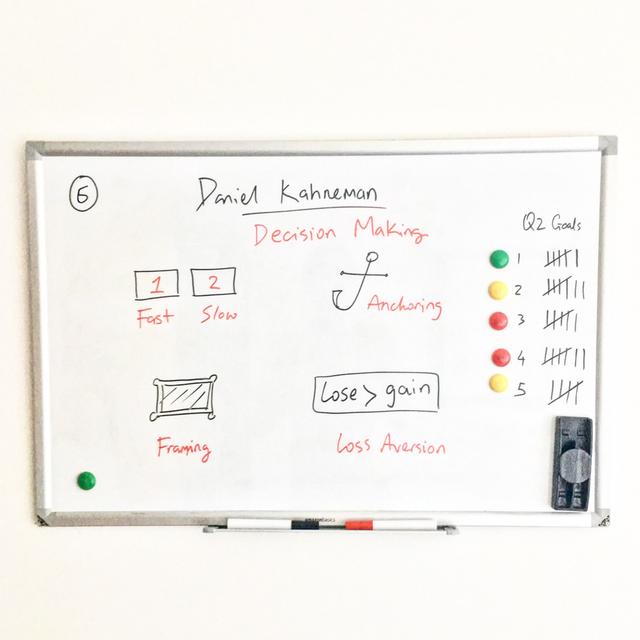 6
Daniel Kahneman
Decision Making
1 2
Fast Slow
Anchoring
Framing
Lose > gain
Loss Aversion
Q2 Goals
1
2
3
4
5